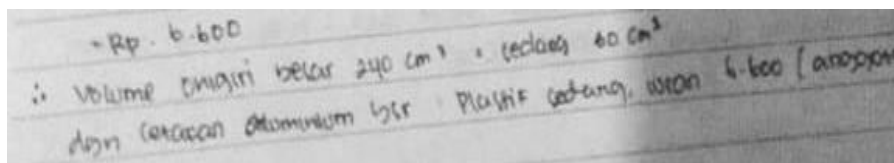 = Rp. 6.600
∴ Volume onigiri besar 240 cm³, sedang 60 cm³
dgn cetakan aluminium bsr plastik sedang. 6.600 (